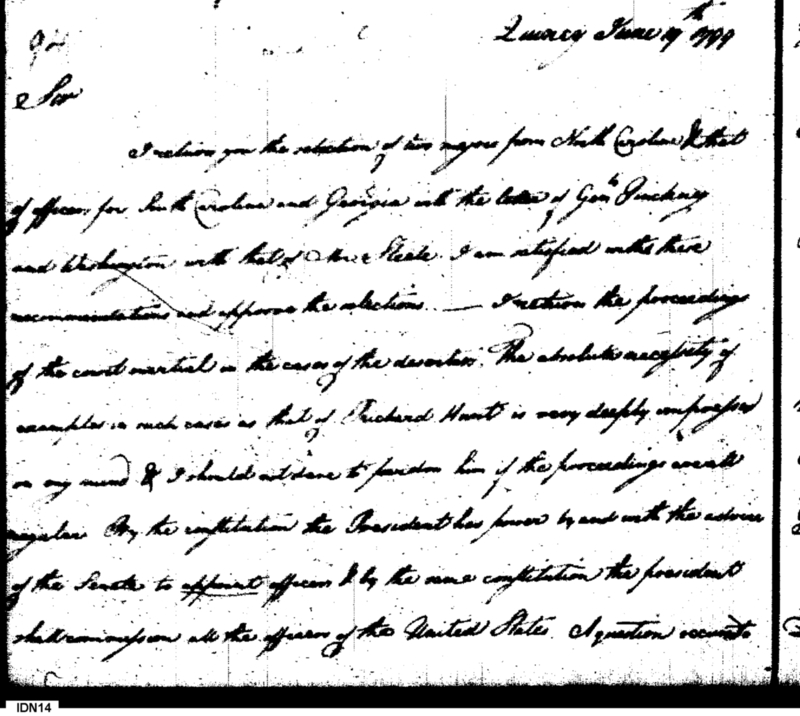 94
Quincy June 19th 1799
Sir
I return you the selection of two majors from North Carolina & that
of officers for South Carolina and Georgia with the letter of Genls Pinckney
and Washington with that of Mr. Steele. I am satisfied with these
recommendations and approve the selections. — I return the proceedings
of the court martial in the cases of the deserters. The absolute necessity of
examples in such cases as that of Richard Hunt is very deeply impressed
on my mind & I should not dare to pardon him if the proceedings are all
regular. By the constitution the President has power by and with the advice
of the Senate to appoint officers & by the same constitution the president
shall commission all the officers of the United States. A question occurs to
IDN14